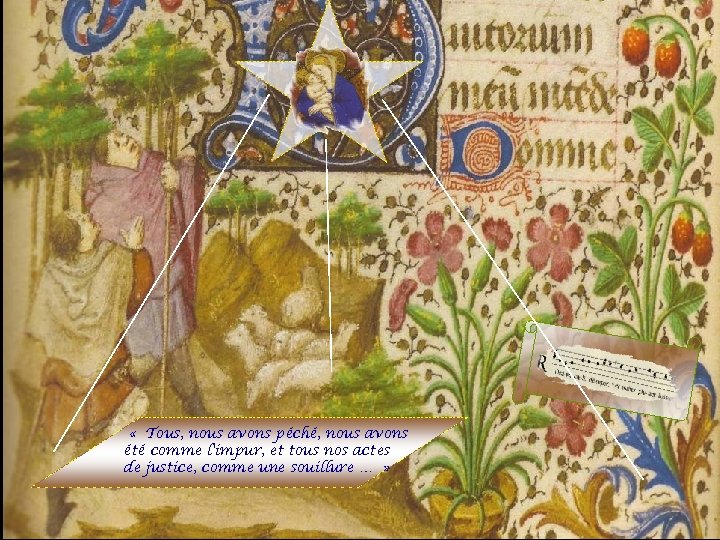 uutorium
meū intēde
Domine
« Tous, nous avons péché, nous avons
été comme l'impur, et tous nos actes
de justice, comme une souillure … »
R